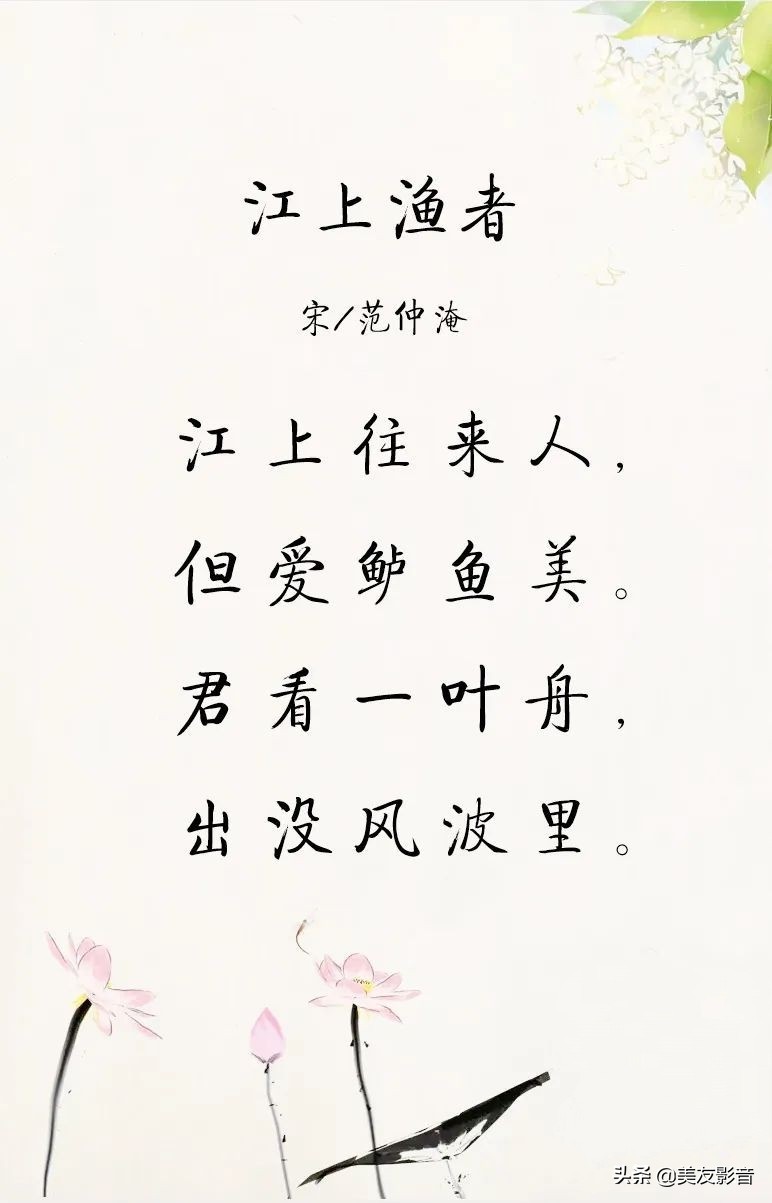 江上渔者
宋/范仲淹
江上往来人，
但爱鲈鱼美。
君看一叶舟，
出没风波里。
头条 @美友影音